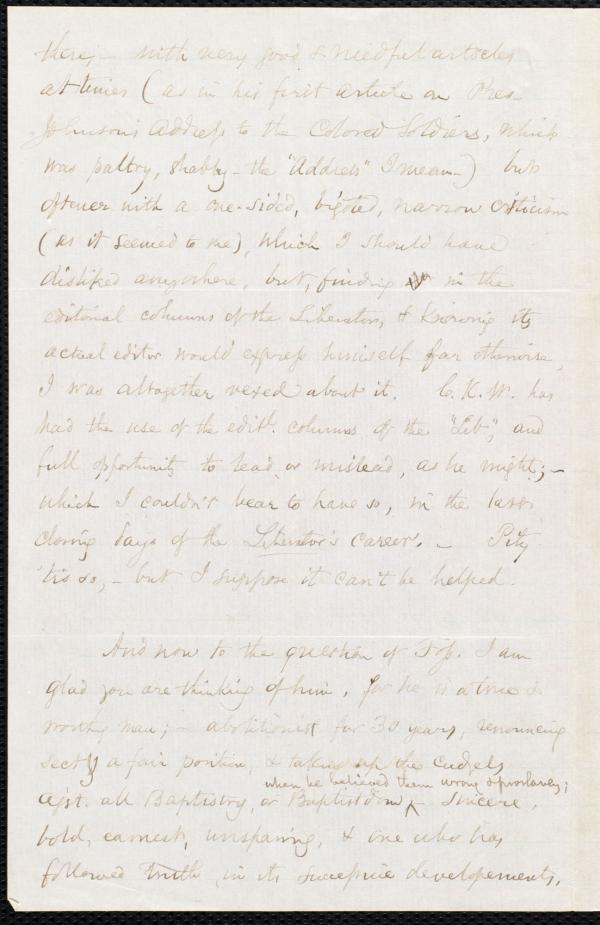 there, – with very good & needful articles
at times (as in his first article on Pres.
Johnson's Address to the Colored Soldiers, which
was paltry, shabby – the "Address" I mean –) but
oftener with a one-sided, bigoted, narrow criticism
(as it seemed to me), which I should have
disliked anywhere, but, finding in the
editorial columns of the Liberator, & knowing its
actual editor would express himself far otherwise,
I was altogether vexed about it. C. K. W. has
had the use of the editl. columns of the "Lib", and
full opportunity to lead, or mislead, as he might; –
which I couldn't bear to have so, in the last
closing days of the Liberator's career. – Pity
'tis so, – but I suppose it can't be helped.
And now to the question of Foss. I am
glad you are thinking of him, for he is a true &
worthy man; – abolitionist for 30 years, renouncing
sect & a fair position, & taking up the cudgels
when he believed them wrong & proslavery;
agst. all Baptistry, or Baptistdom, – sincere,
bold, earnest, unsparing, & one who has
followed truth, in its successive developements,